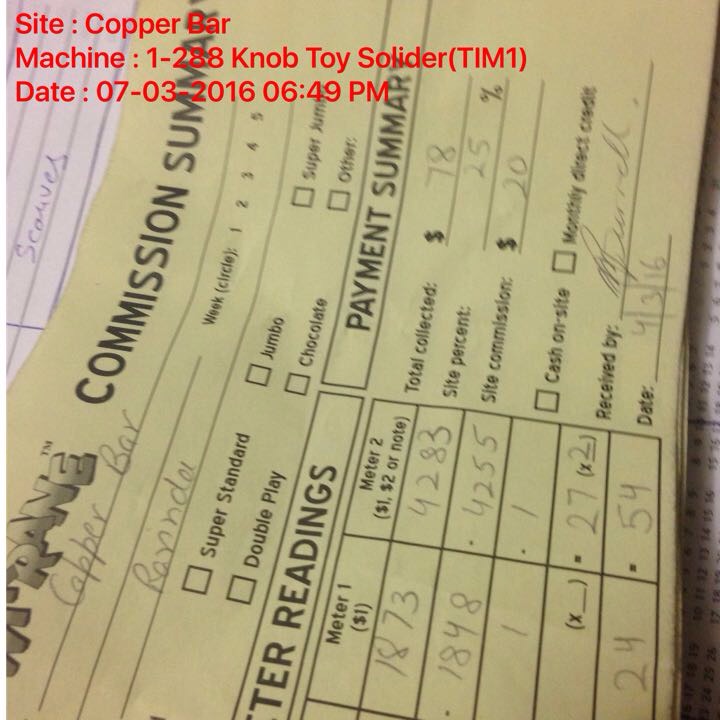 Site : Copper Bar
Machine : 1-288 Knob Toy Solider(TIM1)
Date : 07-03-2016 06:49 PM
Scarves
COMMISSION SUMMARY
Copper Bar
Week (circle): 1 2 3 4 5
Super Standard
Jumbo
Super Jum
Double Play
Chocolate
Other:
TER READINGS
Meter 1
($1)
Meter 2
($1, $2 or note)
1873
4283
- 1848
- 4255
1
- 1
(x_)
= 27 (x2)
24
= 54
PAYMENT SUMMARY
Total collected: $ 78
Site percent: 25 %
Site commission: $ 20
Cash on-site
Monthly direct credit
Received by:
Date: 4/3/16